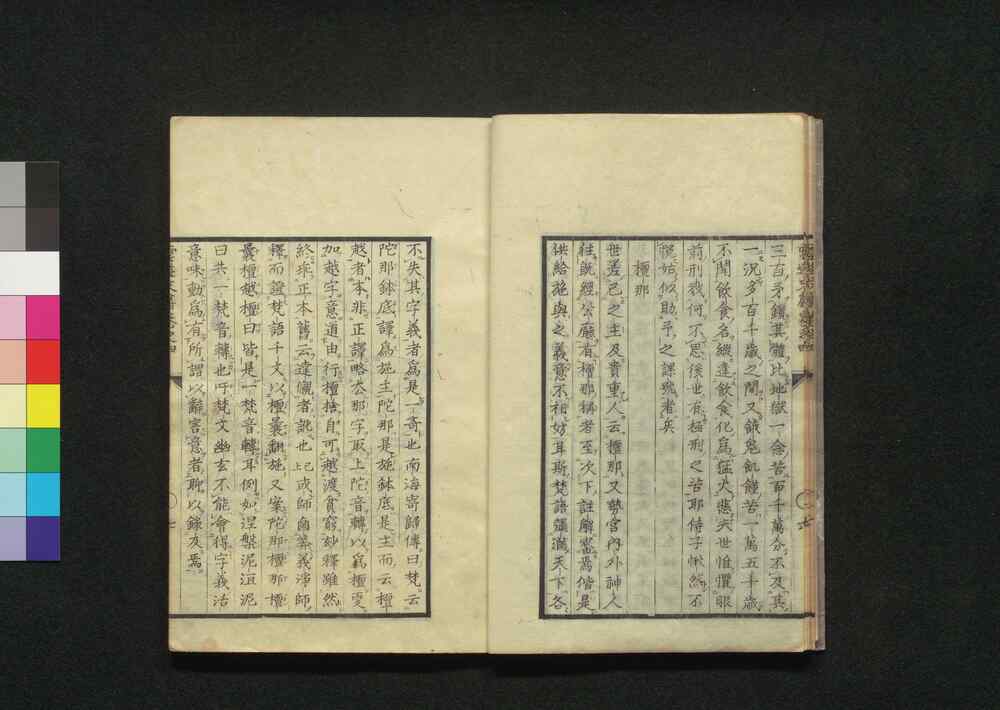 三百矛鑽其體比地獄一念苦百千萬分不及其
一況多百千歲之間又餓鬼飢饉苦一萬五千歲
不聞飲食名縱逢飲食化爲猛火悲夫惟懼眼
前刑我何不思後世有極刑之苦耶侍子愀然不
悅姑似助予之謀鬼者矣
檀那
世差己之主及貴重人云檀那又勢宮內外神人
往就經公廨有檀那稱者至次下註解當蒿偕是
供給施與之義意不相妨耳斯梵語彌滿天下各
不失其字義者爲是一奇也南海寄歸傳曰梵云
陀那鉢底譯爲施主陀那是施鉢底是主而云檀
越者本非正譯略去那字取上陀音轉以爲檀更
加越字意道由行檀捨自可越渡貧窮妙釋雖然
終乖正本舊云達儭者訛也已上或師自義義淨師
釋而證梵語千文以檀曩翻施又案陀那檀那檀
曩檀越檀曰皆是一梵音轉耳例如涅槃泥洹泥
曰共一梵音轉也吁梵文幽玄不能會得字義活
意味動爲有所謂以辭害意者聊以錄及焉